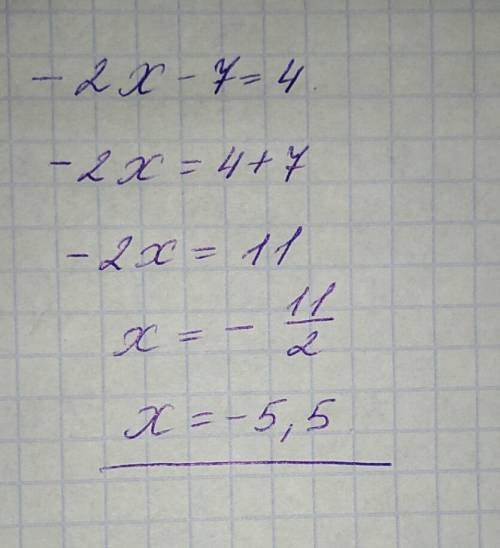 -2x-7=4
-2x=4+7
-2x=11
x=-11/2
x=-5,5